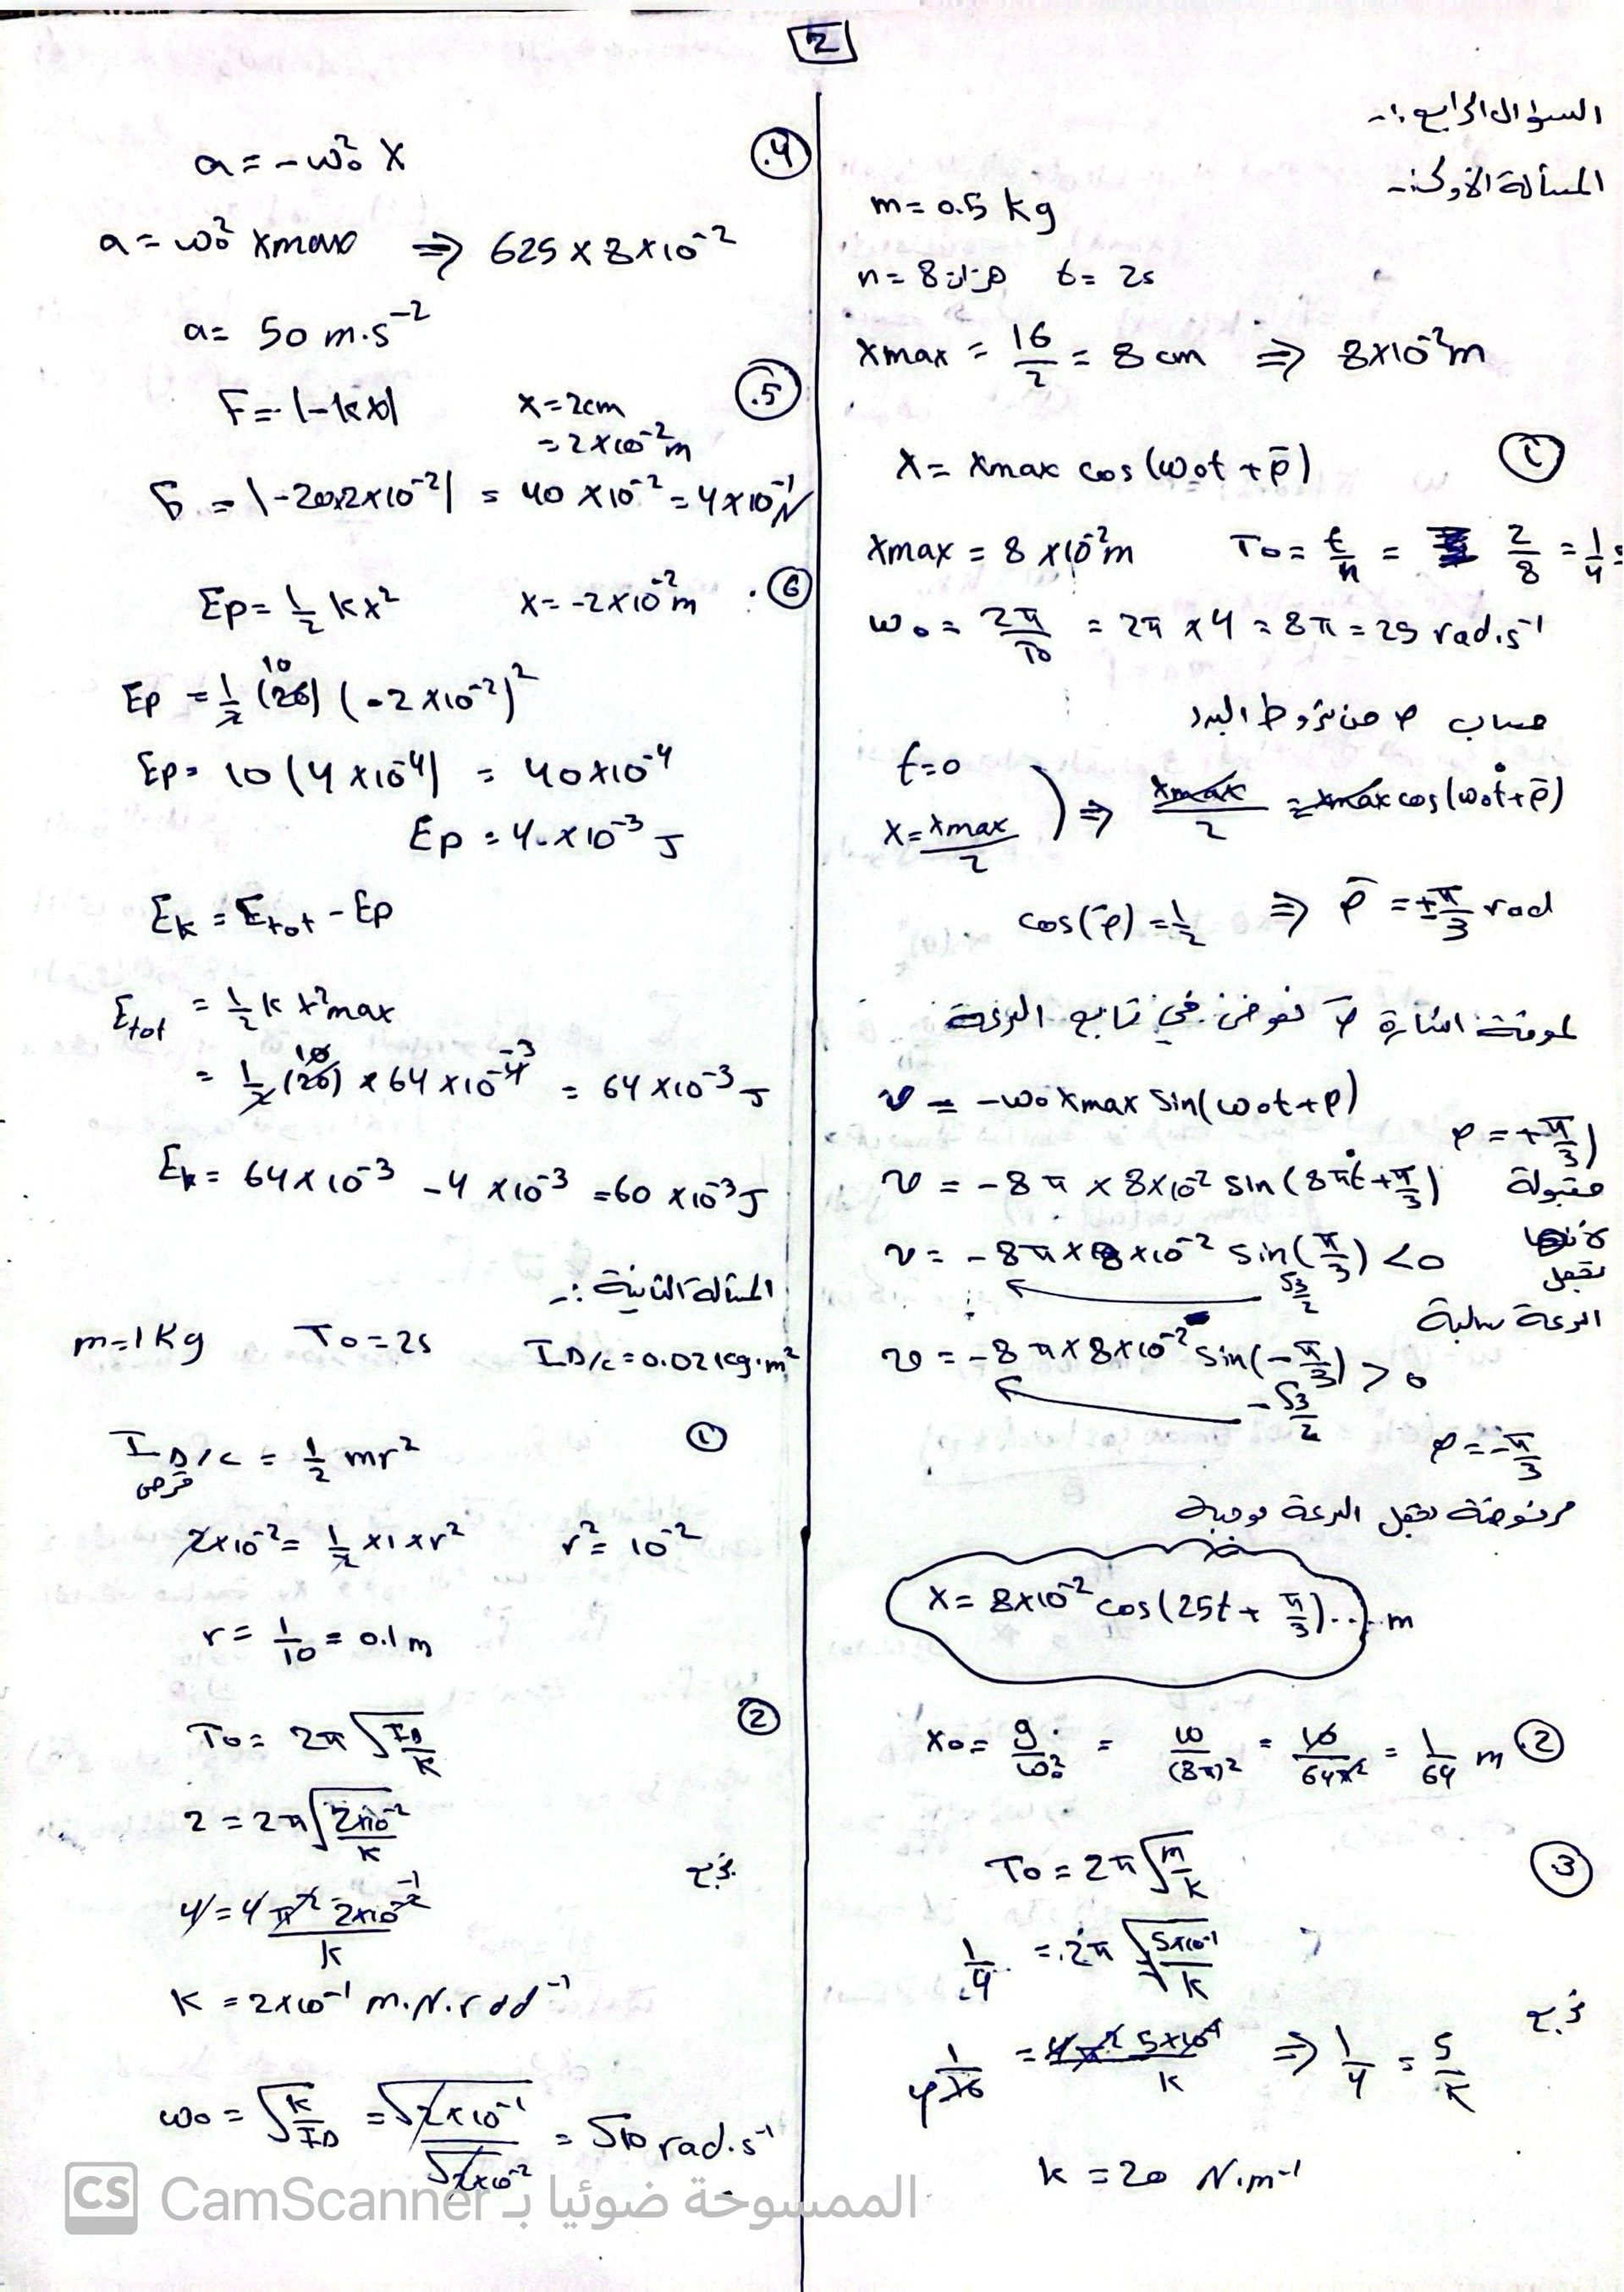 2
السؤال الرابع :-
المسألة الأولى :-
m = 0.5 kg
n = 8 هزات t = 2s
xmax = 16/2 = 8 cm ⇒ 8×10^-2 m
①
x = xmax cos(ω0t + φ̄)
xmax = 8×10^-2 m T0 = t/n = 2/8 = 1/4 s
ω0 = 2π/T0 = 2π × 4 = 8π = 25 rad.s^-1
حساب φ من شروط البدء
t=0
x = xmax/2 ⇒ xmax/2 = xmax cos(ω0t + φ̄)
cos(φ̄) = 1/2 ⇒ φ̄ = ±π/3 rad
لمعرفة اشارة φ̄ نعوض في تابع السرعة
v = -ω0 xmax sin(ω0t + φ)
φ = +π/3)
v = -8π × 8×10^-2 sin(8πt + π/3) مقبولة
v = -8π × 8×10^-2 sin(π/3) < 0 لأنها تجعل
√3/2
السرعة سالبة
v = -8π × 8×10^-2 sin(-π/3) > 0
-√3/2
φ = -π/3
مرفوضة تجعل السرعة موجبة
x = 8×10^-2 cos(25t + π/3)....m
x0 = g/ω0^2 = 10/(8π)^2 = 10/64π^2 = 1/64 m ②
T0 = 2π√(m/k) ③
1/4 = 2π√(5×10^-1/k)
1/16 = 4π^2 5×10^-1/k ⇒ 1/4 = 5/k
k = 20 N.m^-1
a = -ω0^2 x ④
a = ω0^2 xmax ⇒ 625 × 8×10^-2
a = 50 m.s^-2
F = |-kx| x = 2cm ⑤
= 2×10^-2 m
F = |-20×2×10^-2| = 40×10^-2 = 4×10^-1 N
Ep = 1/2 kx^2 x = -2×10^-2 m ⑥
Ep = 1/2 (20) (-2×10^-2)^2
Ep = 10 (4×10^-4) = 40×10^-4
Ep = 4×10^-3 J
Ek = Etot - Ep
Etot = 1/2 k x^2max
= 1/2 (20) × 64×10^-4 = 64×10^-3 J
Ek = 64×10^-3 - 4×10^-3 = 60×10^-3 J
المسألة الثانية :-
m = 1 Kg T0 = 2s I∆/c = 0.02 kg.m^2
I∆/c = 1/2 mr^2 ①
قرص
2×10^-2 = 1/2 × 1 × r^2 r^2 = 10^-2
r = 1/10 = 0.1 m
T0 = 2π√(I∆/k) ②
2 = 2π√(2×10^-2/k)
4 = 4π^2 2×10^-2/k
k = 2×10^-1 m.N.rad^-1
ω0 = √(k/I∆) = √(2×10^-1)/√(2×10^-2) = √10 rad.s^-1
CS CamScanner الممسوحة ضوئيا بـ